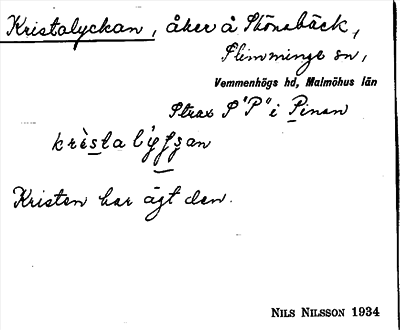 Kristalyckan, åker å Stönabäck,
Slimminge sn,
Vemmenhögs hd, Malmöhus län
Strax S "P" i Pinan
Kristen har ägt den.
NILS NILSSON 1934